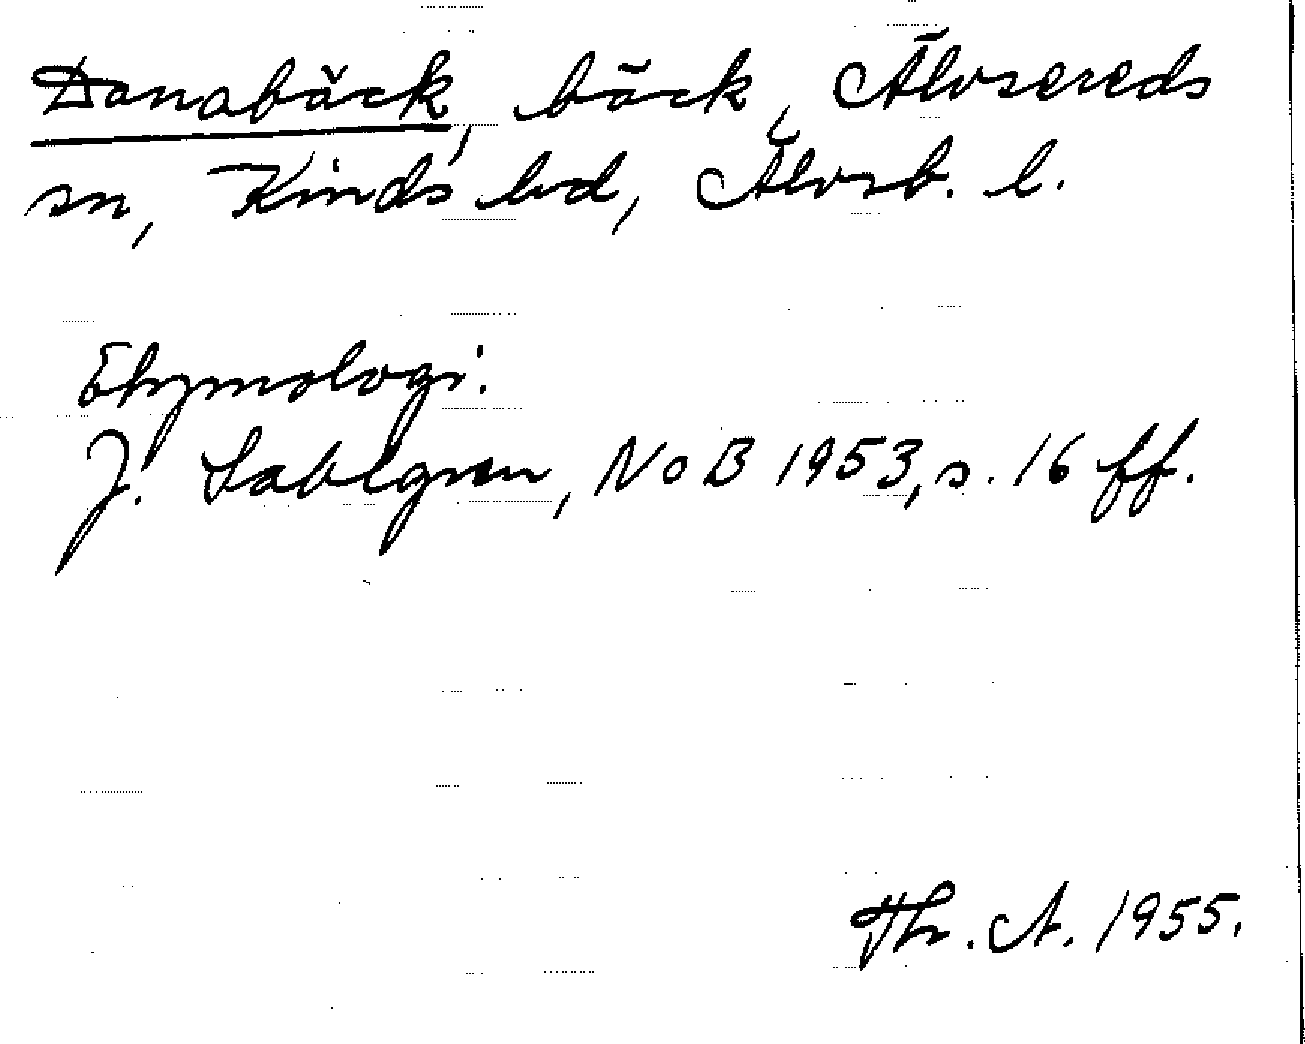 Danabäck, bäck, Älvsereds
sn, Kinds hd, Älvsb. l.
Etymologi:
J. Sahlgren, NoB 1953, s. 16 ff.
Th. A. 1955.